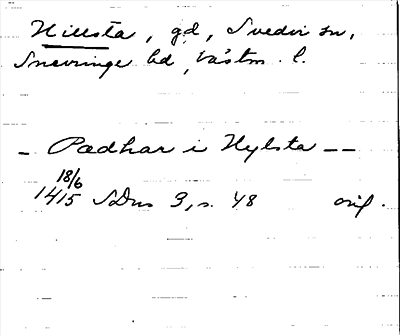 Hillsta, gd, Svedvi sn,
Snevringe hd, Västm. l.
– Padhar i Hylsta – –
18/6
1415 SDns 3, s. 48 orig.